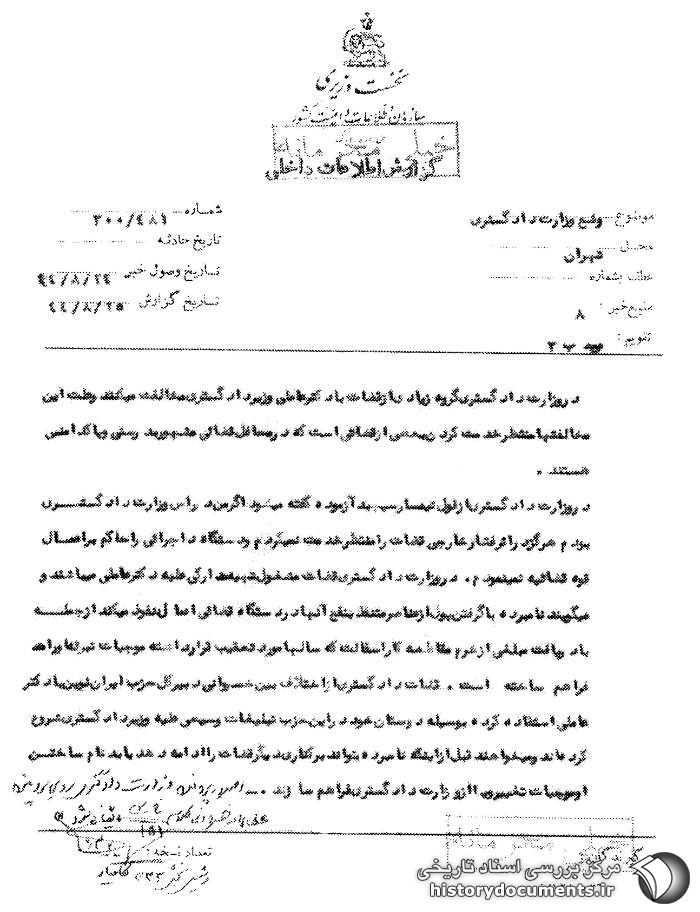 نخست وزیری
سازمان اطلاعات و امنیت کشور
خیلی محرمانه
گزارش اطلاعات داخلی
موضوع وضع وزارت دادگستری
شماره ۳۰۰/۴۸۱
محل تهران
تاریخ حادثه
عطف بشماره
تاریخ وصول خبر ۴۴/۸/۲۴
منبع خبر : ۸
تاریخ گزارش ۴۴/۸/۲۵
تقویم : ب ۲
در وزارت دادگستری گروه زیادی از قضات با دکتر عاملی وزیر دادگستری مخالفت میکنند وعلت این
مخالفتها منتظر خدمت کردن بعضی از قضاتی است که در مسائل قضائی مشهور به درستی و پاکدامنی
هستند .
در وزارت دادگستری از قول تیمسار سپهبد آزموده گفته میشود اگر من در راس وزارت دادگستری
بودم هرگز در اثر فشار خارجی قضات را منتظر خدمت نمیکردم و دستگاه اجرائی را حاکم بر اعمال
قوه قضائیه نمینمودم . در وزارت دادگستری قضات مشغول تهیه مدارکی علیه دکتر عاملی میباشند و
میگویند نامبرده با گرفتن پول از عناصر متنفذ بنفع آنها در دستگاه قضائی اعمال نفوذ میکند از جمله
با دریافت مبلغی از خرم مقاطعه کار اسفالت که سالها مورد تعقیب قرار داشته موجبات تبرئه او را
فراهم ساخته است . قضات دادگستری از اختلاف بین خسروانی دبیر کل حزب ایران نوین با دکتر
عاملی استفاده کرده بوسیله دوستان خود در این حزب تبلیغات وسیعی علیه وزیر دادگستری شروع
کرده اند و میخواهند قبل از اینکه نامبرده بتواند برکناری دیگر قضات را ادامه دهد با بدنام ساختن
او موجبات تغییر وی را از وزارت دادگستری فراهم سازند .
تعداد نسخه :
مرکز بررسی اسناد تاریخی
historydocuments.ir